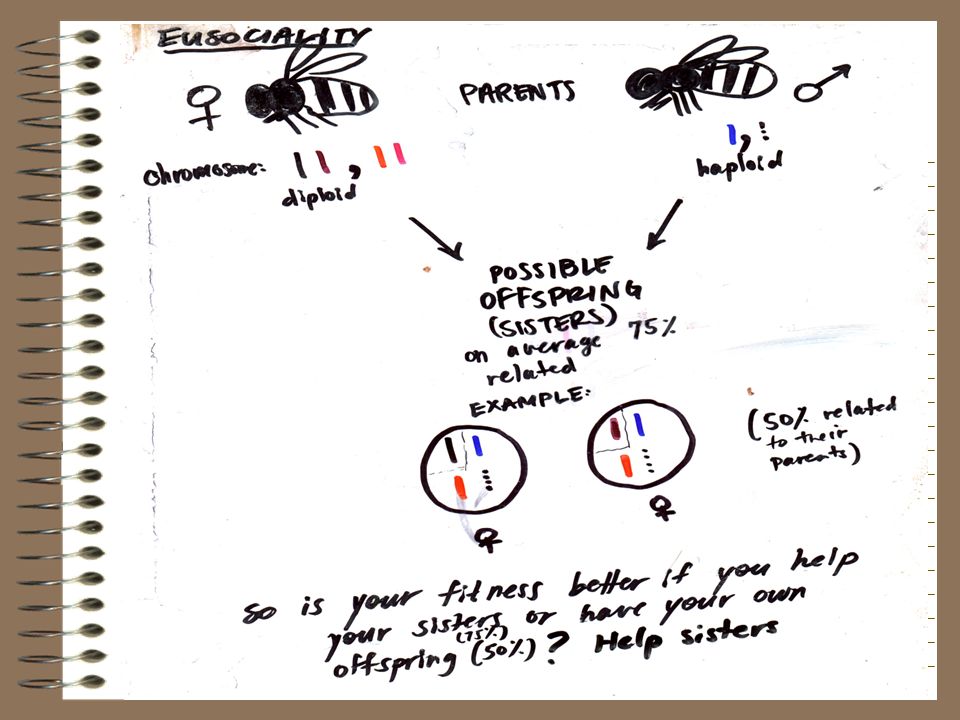 EUSOCIALITY
♀ PARENTS ♂
chromosome: , ,
diploid haploid
POSSIBLE
OFFSPRING
(SISTERS)
on average 75%
related
EXAMPLE:
(50% related
to their
parents)
♀ ♀
so is your fitness better if you help
your sisters or have your own
(75%)
offspring (50%)? Help sisters